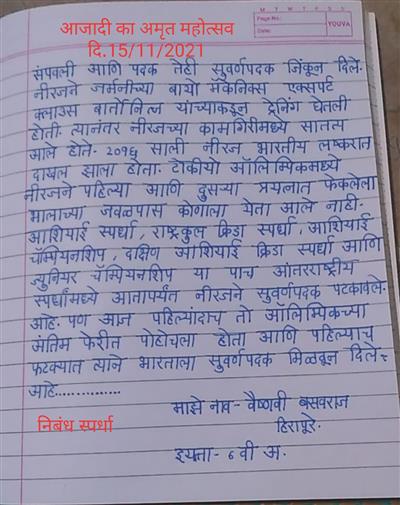 आजादी का अमृत महोत्सव
दि.15/11/2021
M T W T F S S
Page No.:
Date:
YOUVA
संपवली आणि पदक तेही सुवर्णपदक जिंकून दिले.
नीरजने जर्मनीच्या बायो मॅकेनिक्स एक्सपर्ट
क्लाउस बार्तोनित्ज यांच्याकडून ट्रेनिंग घेतली
होती. त्यानंतर नीरजच्या कामगिरीमध्ये सातत्य
आले होते. २०१६ साली नीरज भारतीय लष्करात
दाखल झाला होता. टोकीयो ऑलिम्पिकमध्ये
नीरजने पहिल्या आणि दुसऱ्या प्रयत्नात फेकलेला
भालाच्या जवळपास कोणाला येता आले नाही.
आशियाई स्पर्धा, राष्ट्रकुल क्रिडा स्पर्धा, आशियाई
चॅम्पियनशिप, दक्षिण आशियाई क्रिडा स्पर्धा आणि
ज्युनियर चॅम्पियनशिप या पाच आंतरराष्ट्रीय
स्पर्धांमध्ये आतापर्यंत नीरजने सुवर्णपदक पटकावले.
आहे. पण आज पहिल्यांदाच तो ऑलिम्पिकच्या
अंतिम फेरीत पोहोचला होता आणि पहिल्याच
फटक्यात त्याने भारताला सुवर्णपदक मिळवून दिले
आहे..............
माझे नाव - वैष्णवी बसवराज
हिरापूरे.
निबंध स्पर्धा
इयत्ता - ६ वी अ.